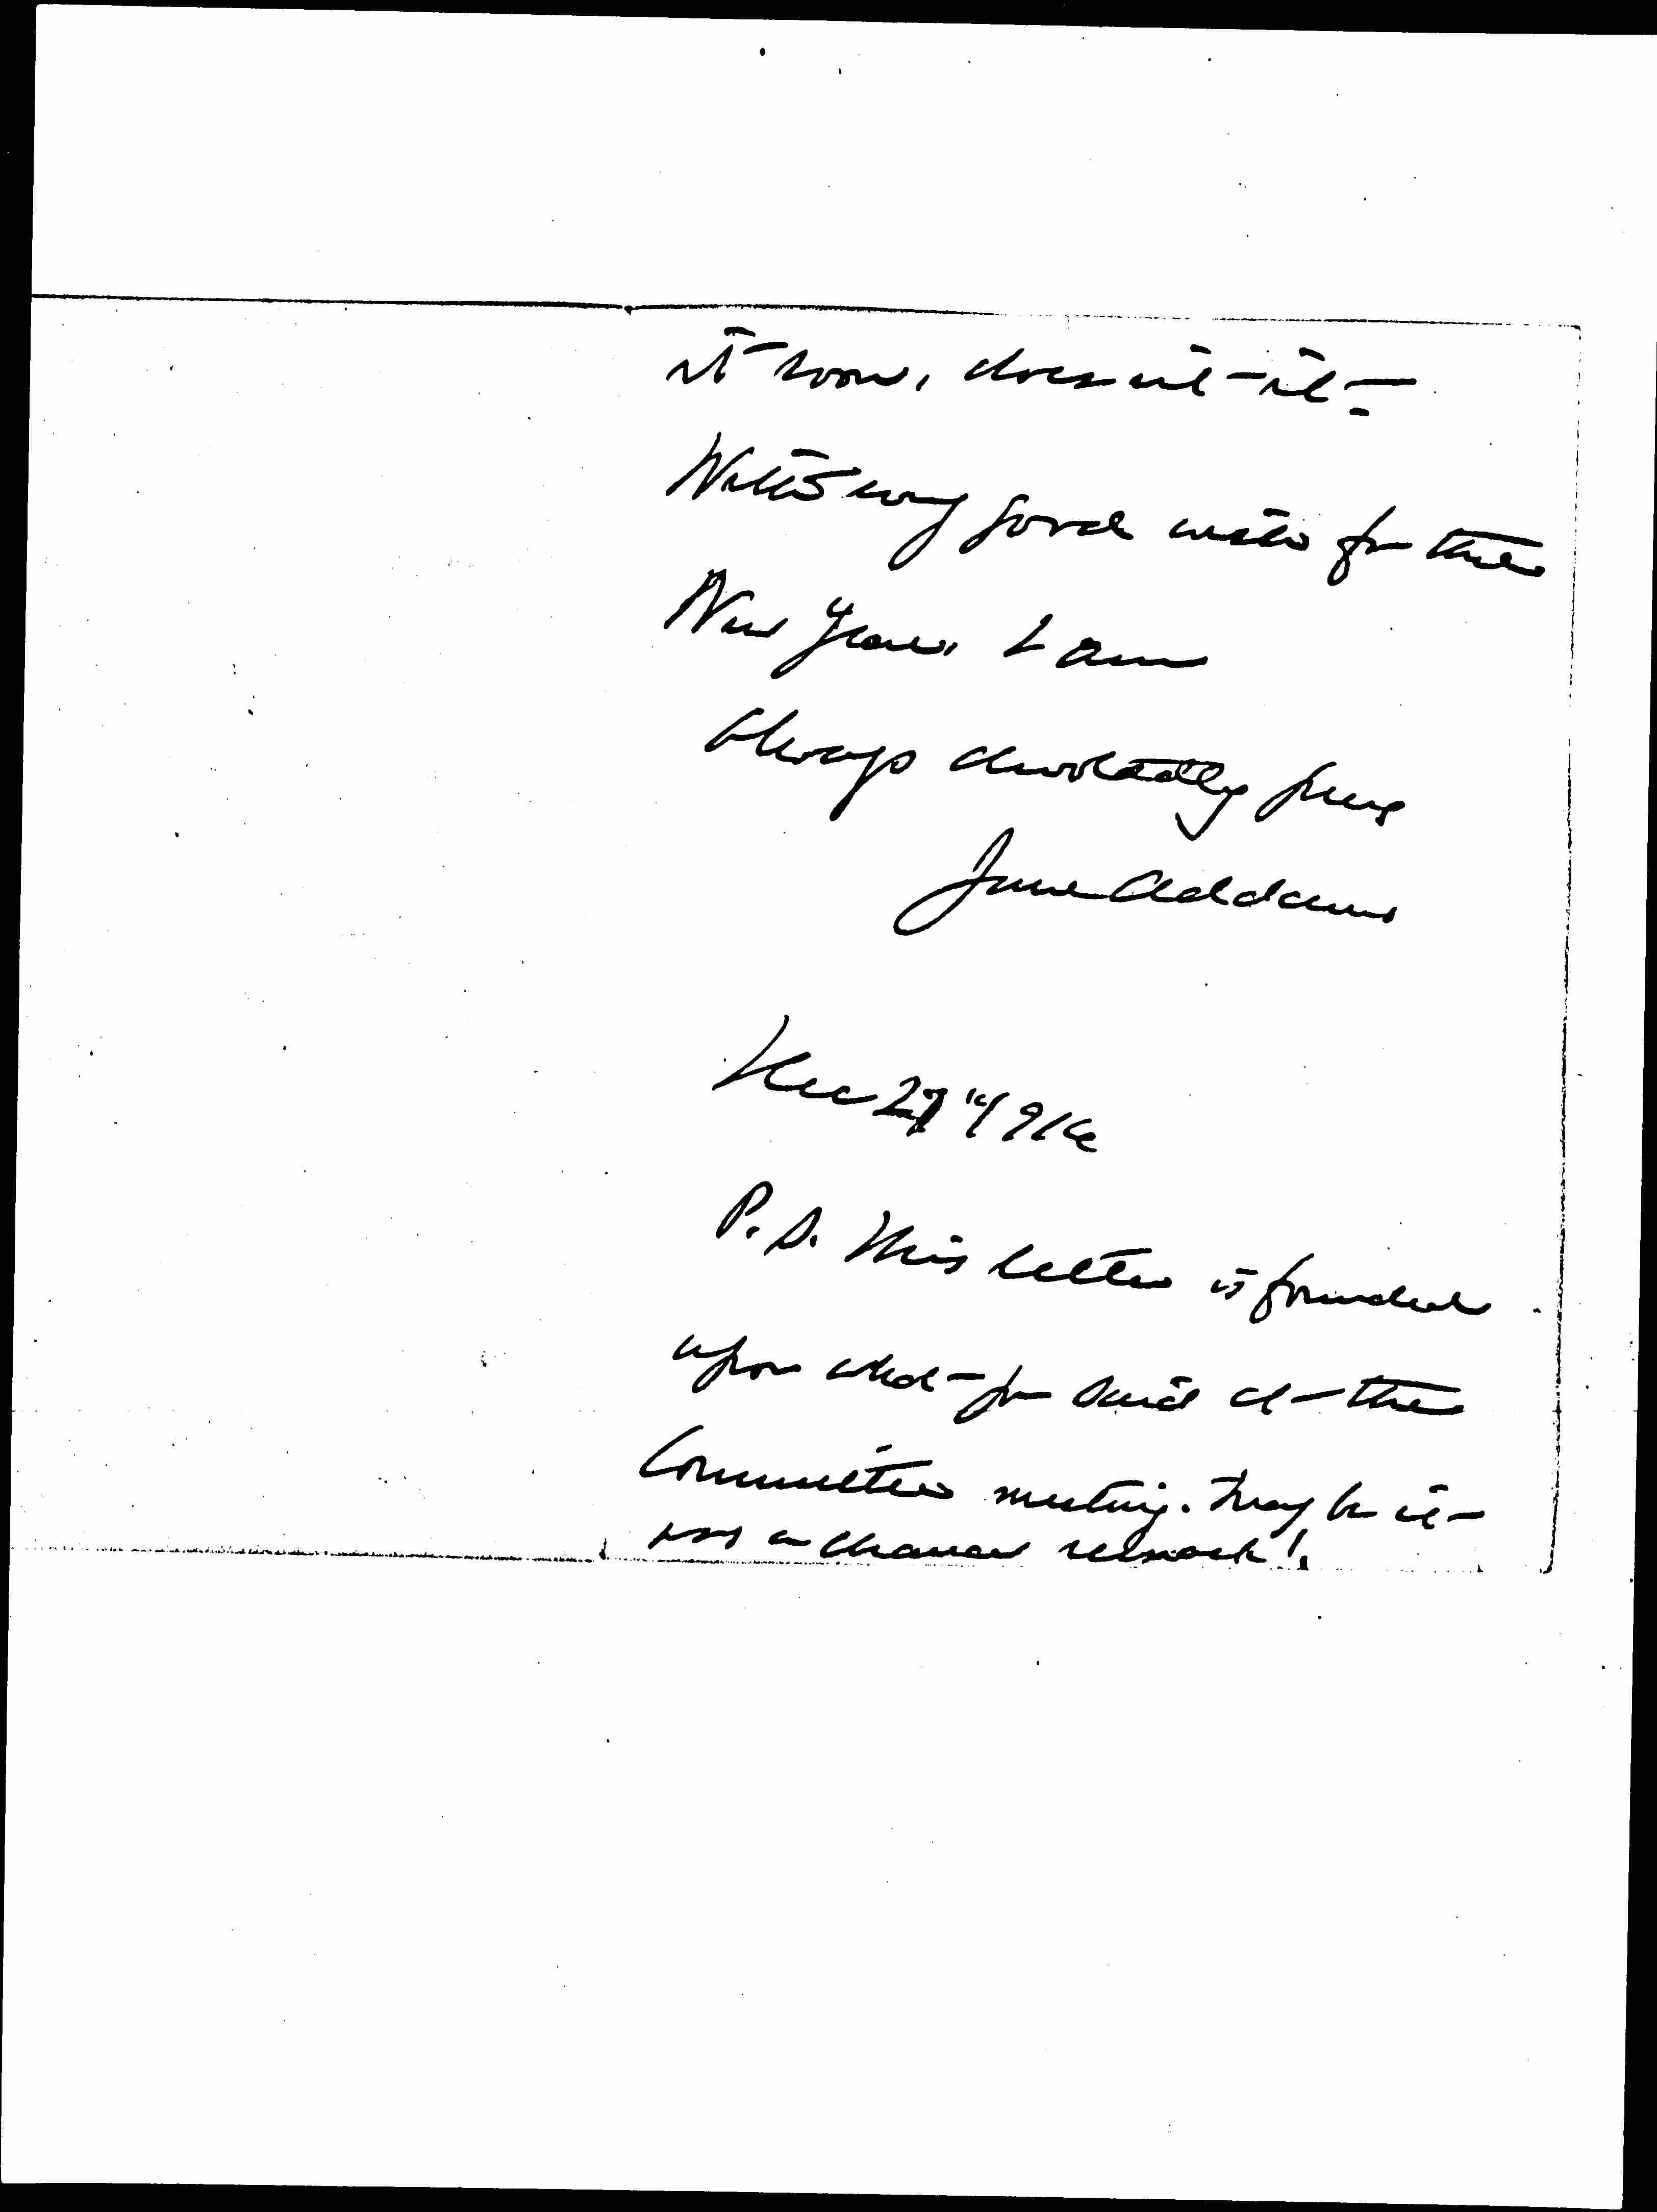 it soon, doesn't it -
With every good wish for the
New Year, I am
always devotedly yours
Jane Addams
Dec 27" 1916
P.S. This letter is founded
upon what you said at the
Committee meeting. May be it
was a chance remark!